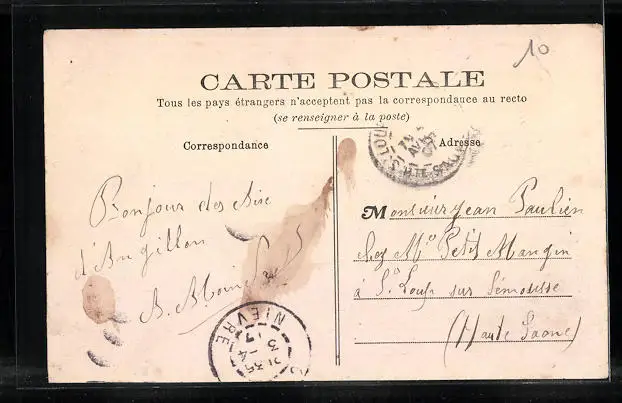 10
CARTE POSTALE
Tous les pays étrangers n'acceptent pas la correspondance au recto
(se renseigner à la poste)
Correspondance
Adresse
Bonjour des Aix
d'Angillon
A.
Monsieur Jean Paulien
chez Mr Petit Mangin
à St Loup sur Sémouse
(Haute Saone)
ST LOUP
HTE SAÔNE
AVRIL
07
NIEVRE
21 35
3 -4